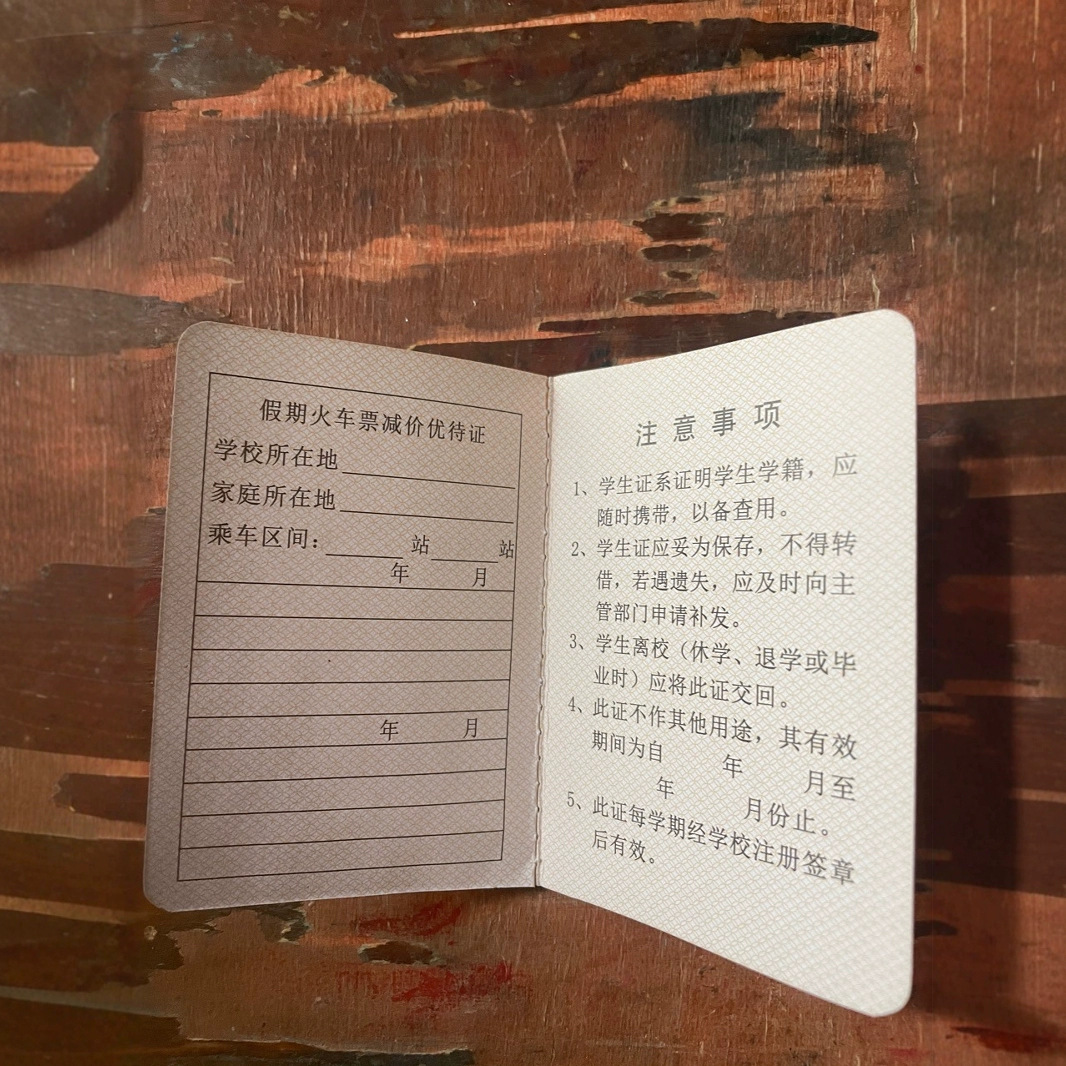 假期火车票减价优待证
学校所在地
家庭所在地
乘车区间： 站 站
年 月
年 月
注意事项
1、学生证系证明学生学籍，应
随时携带，以备查用。
2、学生证应妥为保存，不得转
借，若遇遗失，应及时向主
管部门申请补发。
3、学生离校（休学、退学或毕
业时）应将此证交回。
4、此证不作其他用途，其有效
期间为自 年 月至
年 月份止。
5、此证每学期经学校注册签章
后有效。